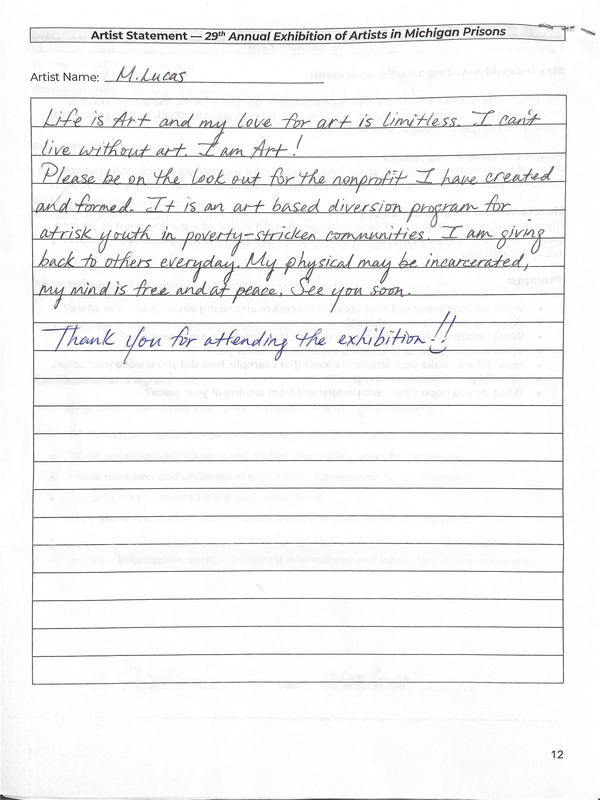 Artist Statement — 29th Annual Exhibition of Artists in Michigan Prisons
Artist Name: M. Lucas
Life is Art and my love for art is limitless. I can't
live without art. I am Art!
Please be on the look out for the nonprofit I have created
and formed. It is an art based diversion program for
atrisk youth in poverty-stricken communities. I am giving
back to others everyday. My physical may be incarcerated,
my mind is free and at peace. See you soon.
Thank you for attending the exhibition!!
12